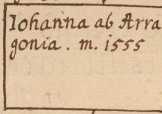 Iohanna ab Arra
gonia . m. 1555